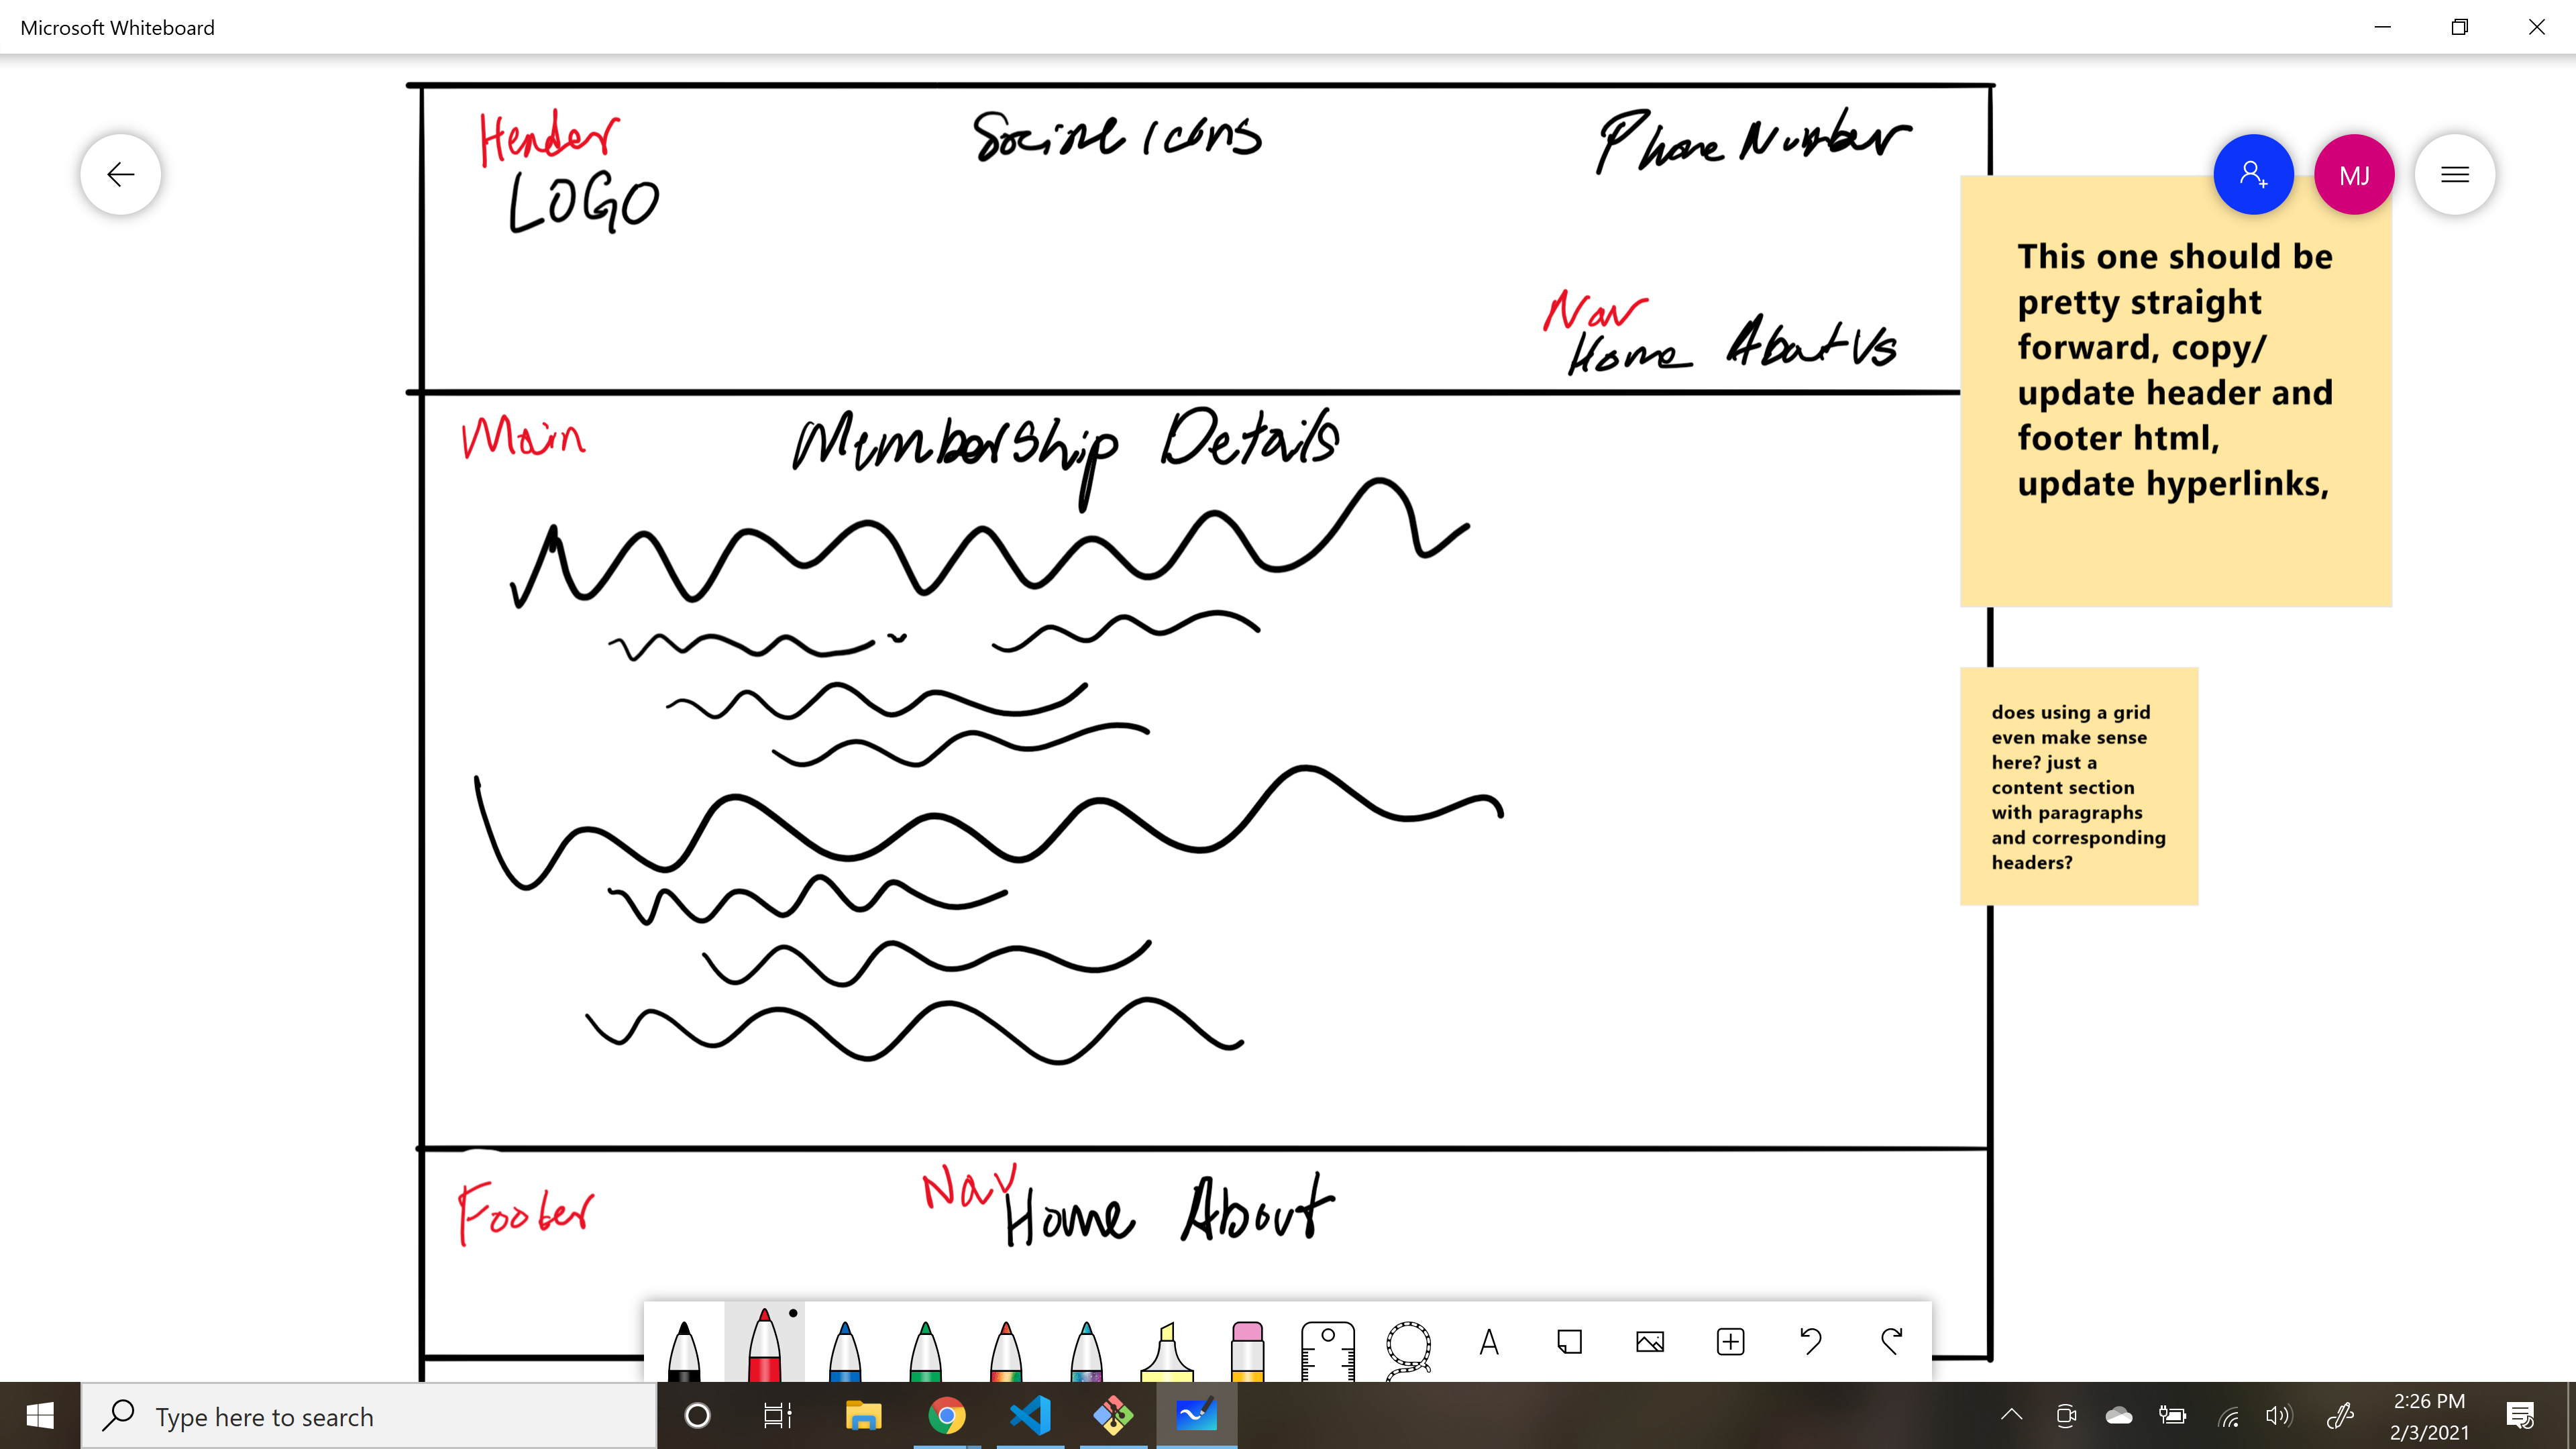 Microsoft Whiteboard
Header
Social icons
Phone Number
LOGO
Nav
Home About Us
MJ
This one should be
pretty straight
forward, copy/
update header and
footer html,
update hyperlinks,
Main
Membership Details
does using a grid
even make sense
here? just a
content section
with paragraphs
and corresponding
headers?
Footer
Nav
Home About
A
Type here to search
2:26 PM
2/3/2021